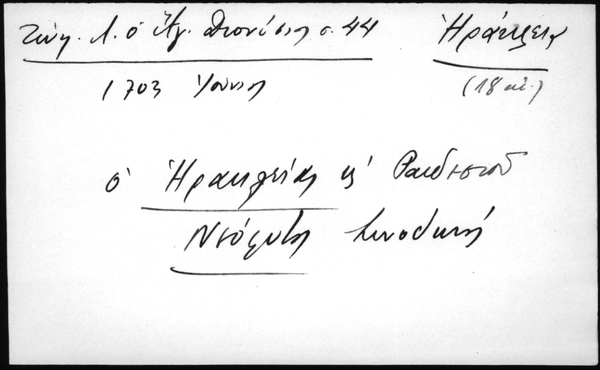 Ζώη. Λ. ὁ Ἅγ. Διονύσιος σ. 44 Ἡράκλεια
1703 Ἰούνιος (18 αἰ.)
ὁ Ἡρακλείας κ' Ραιδεστοῦ
Νεόφυτος Συνοδική